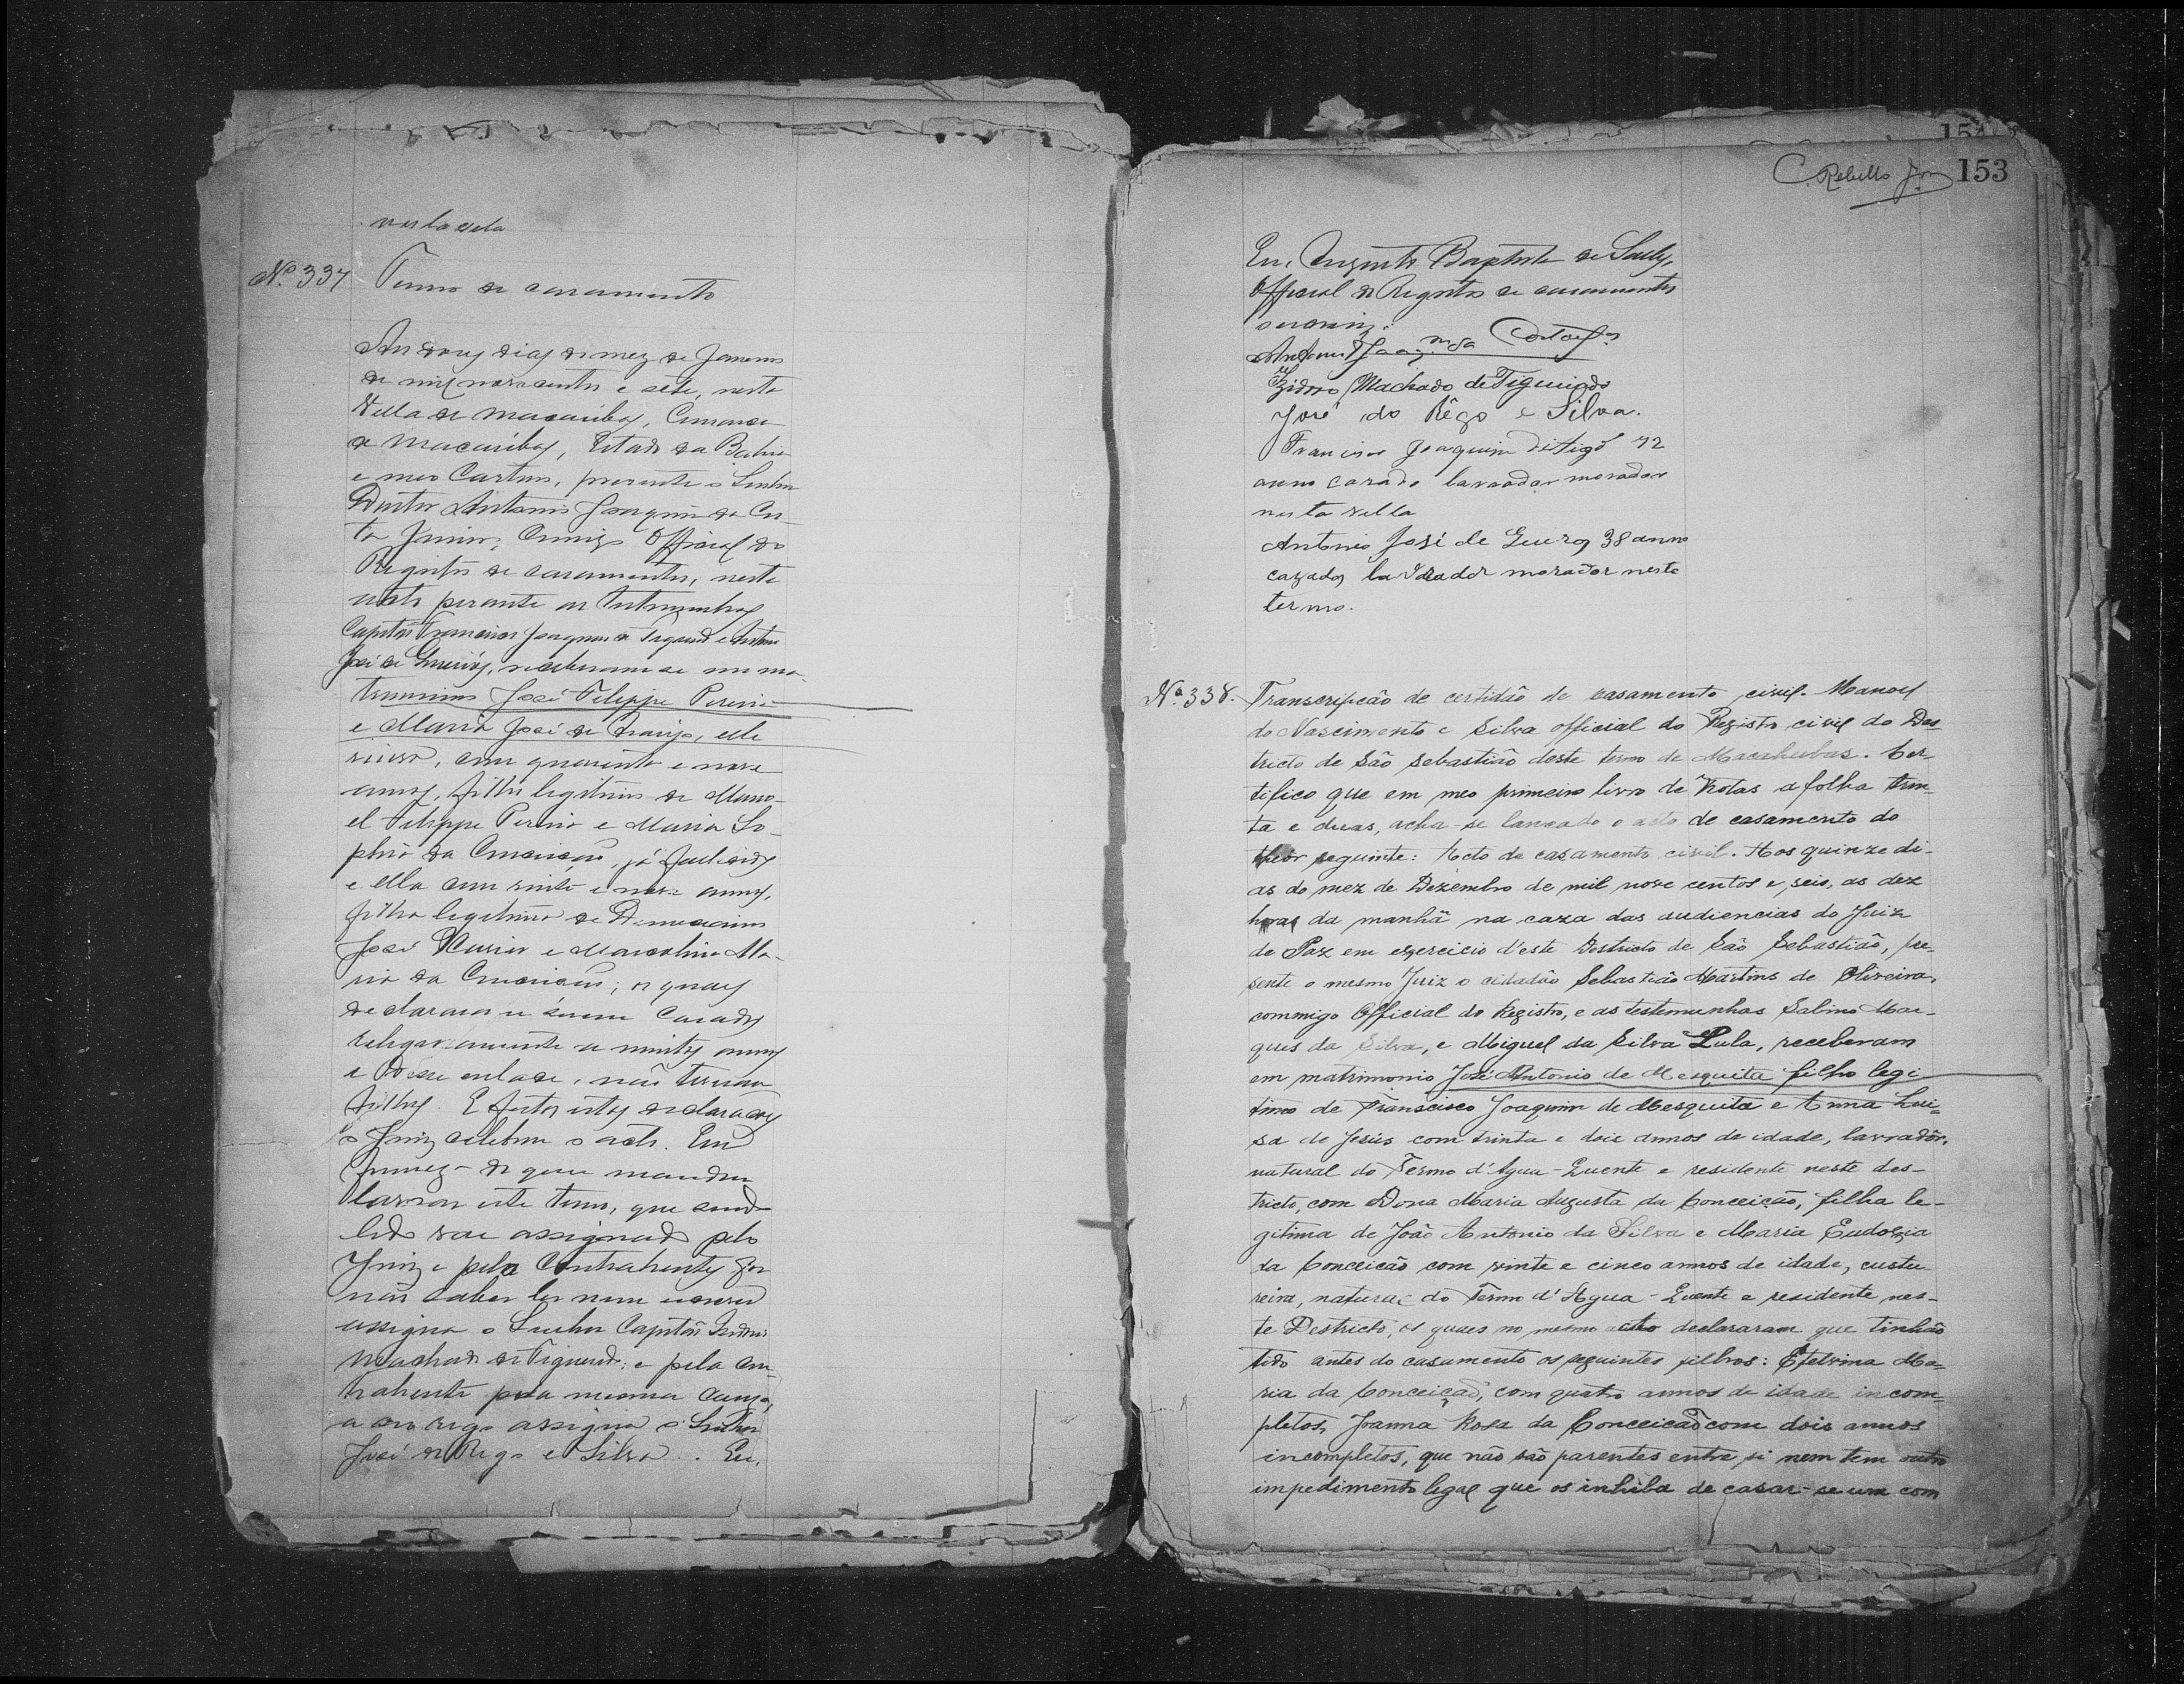 nesta villa
Nº 337 Termo de casamento
Aos doze dias do mez de Janeiro
de mil novecentos e sete, nesta
Villa de Macaúbas, Comarca
de Macaúbas, Estado da Bahia
e meo Cartorio, presente o Senhor
Doutor Antonio Joaquim da Cos-
ta Junior, Comigo Official do
Registro de casamentos, neste
acto perante as testemunhas
Capitão Francisco Joaquim de e Antonio
José de receberam-se em ma-
trimonio José Felippe Pereira
e Maria José de Araujo, elle
viuvo, com quarenta e nove
annos, filho legitimo de Mano-
el Felippe Pereira e Maria So-
phia da Conceição, já fallecidos
e ella com vinte e nove annos,
filha legitima de
José e Marcolina Ma-
ria da Conceição; os quaes
declararam serem Casados
religiosamente a muitos annos
e desse enlace, não tiveram
filhos. E feitas estas declarações
o Juiz celebrou o acto. Em
firmeza do que mandou
lavrar este termo, que sendo
lido vae assignado pelo
Juiz e pelo Contrahente por
não saber ler nem escrever
assigna o Senhor Capitão Isidoro
Machado de Figueredo; e pela con-
trahente pela mesma causa,
a seo rogo assigna o Senhor
José do Rego e Silva. Eu,
154
C. Rebello Jor 153
Eu, Augusto Baptista de
Official do Registro de casamentos
o escrevi.
Antonio Joaqm da Costa Jor
Izidoro Machado de Figueiredo
José do Rêgo e Silva.
Francisco Joaquim 42
anno cazado lavrador morador
nesta villa
Antonio José de 38 anno
cazado lavrador morador neste
termo.
Nº 338. Transcripcão de certidão de casamento civil. Manoel
do Nascimento e Silva official do Registro civil do Des-
tricto de São Sebastião deste termo de Macahubas. Cer-
tifico que em meo primeiro livro de Notas a folha trin-
ta e duas, acha-se lançado o acto de casamento do
theôr seguinte: Acto de casamento civil. Aos quinze di-
as do mez de Dezembro de mil nove centos e seis, as dez
horas da manhã na caza das audiencias do Juiz
de Paz em exercicio d'este Destricto de São Sebastião, pre-
sente o mesmo Juiz o cidadão Sebastião Martins de Oliveira,
commigo Official do Registro, e as testemunhas Sabino Mar-
ques da Silva, e Miguel da Silva Lula, receberam
em matrimonio José Antonio de Mesquita filho legi-
timo de Franscisco Joaquim de Mesquita e Anna Lui-
sa de Jesús com trinta e dois annos de idade, lavradôr,
natural do Termo d'Agua-Quente e residente neste des-
tricto, com Dona Maria Augusta da Conceição, filha le-
gitima de João Antonio da Silva e Maria Eudoxia
da Conceicão com vinte e cinco annos de idade, custu-
reira, natural do Termo d'Agua-Quente e residente nes-
te Destricto, os quaes no mesmo acto declararam que tinhão
tido antes do casamento os seguintes filhos: Etelvina Ma-
ria da Conceiçaõ, com quatro annos de idade incom-
pletos, Joanna Rosa da Conceicaõ com dois annos
incompletos, que não são parentes entre si nem tem outro
impedimento legal que os inhiba de casar-se um com